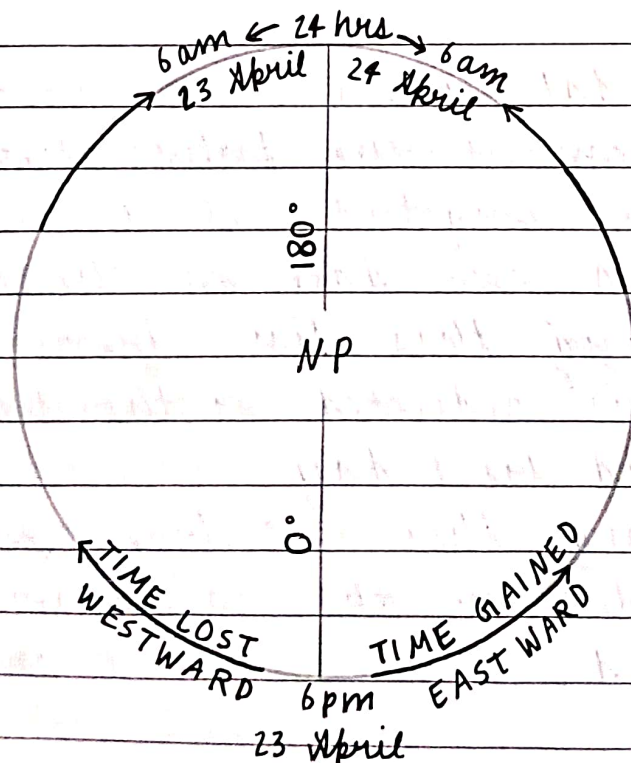 6am ← 24 hrs → 6am
23 April 24 April
180°
N.P
0°
TIME LOST
WESTWARD
TIME GAINED
EASTWARD
6pm
23 April